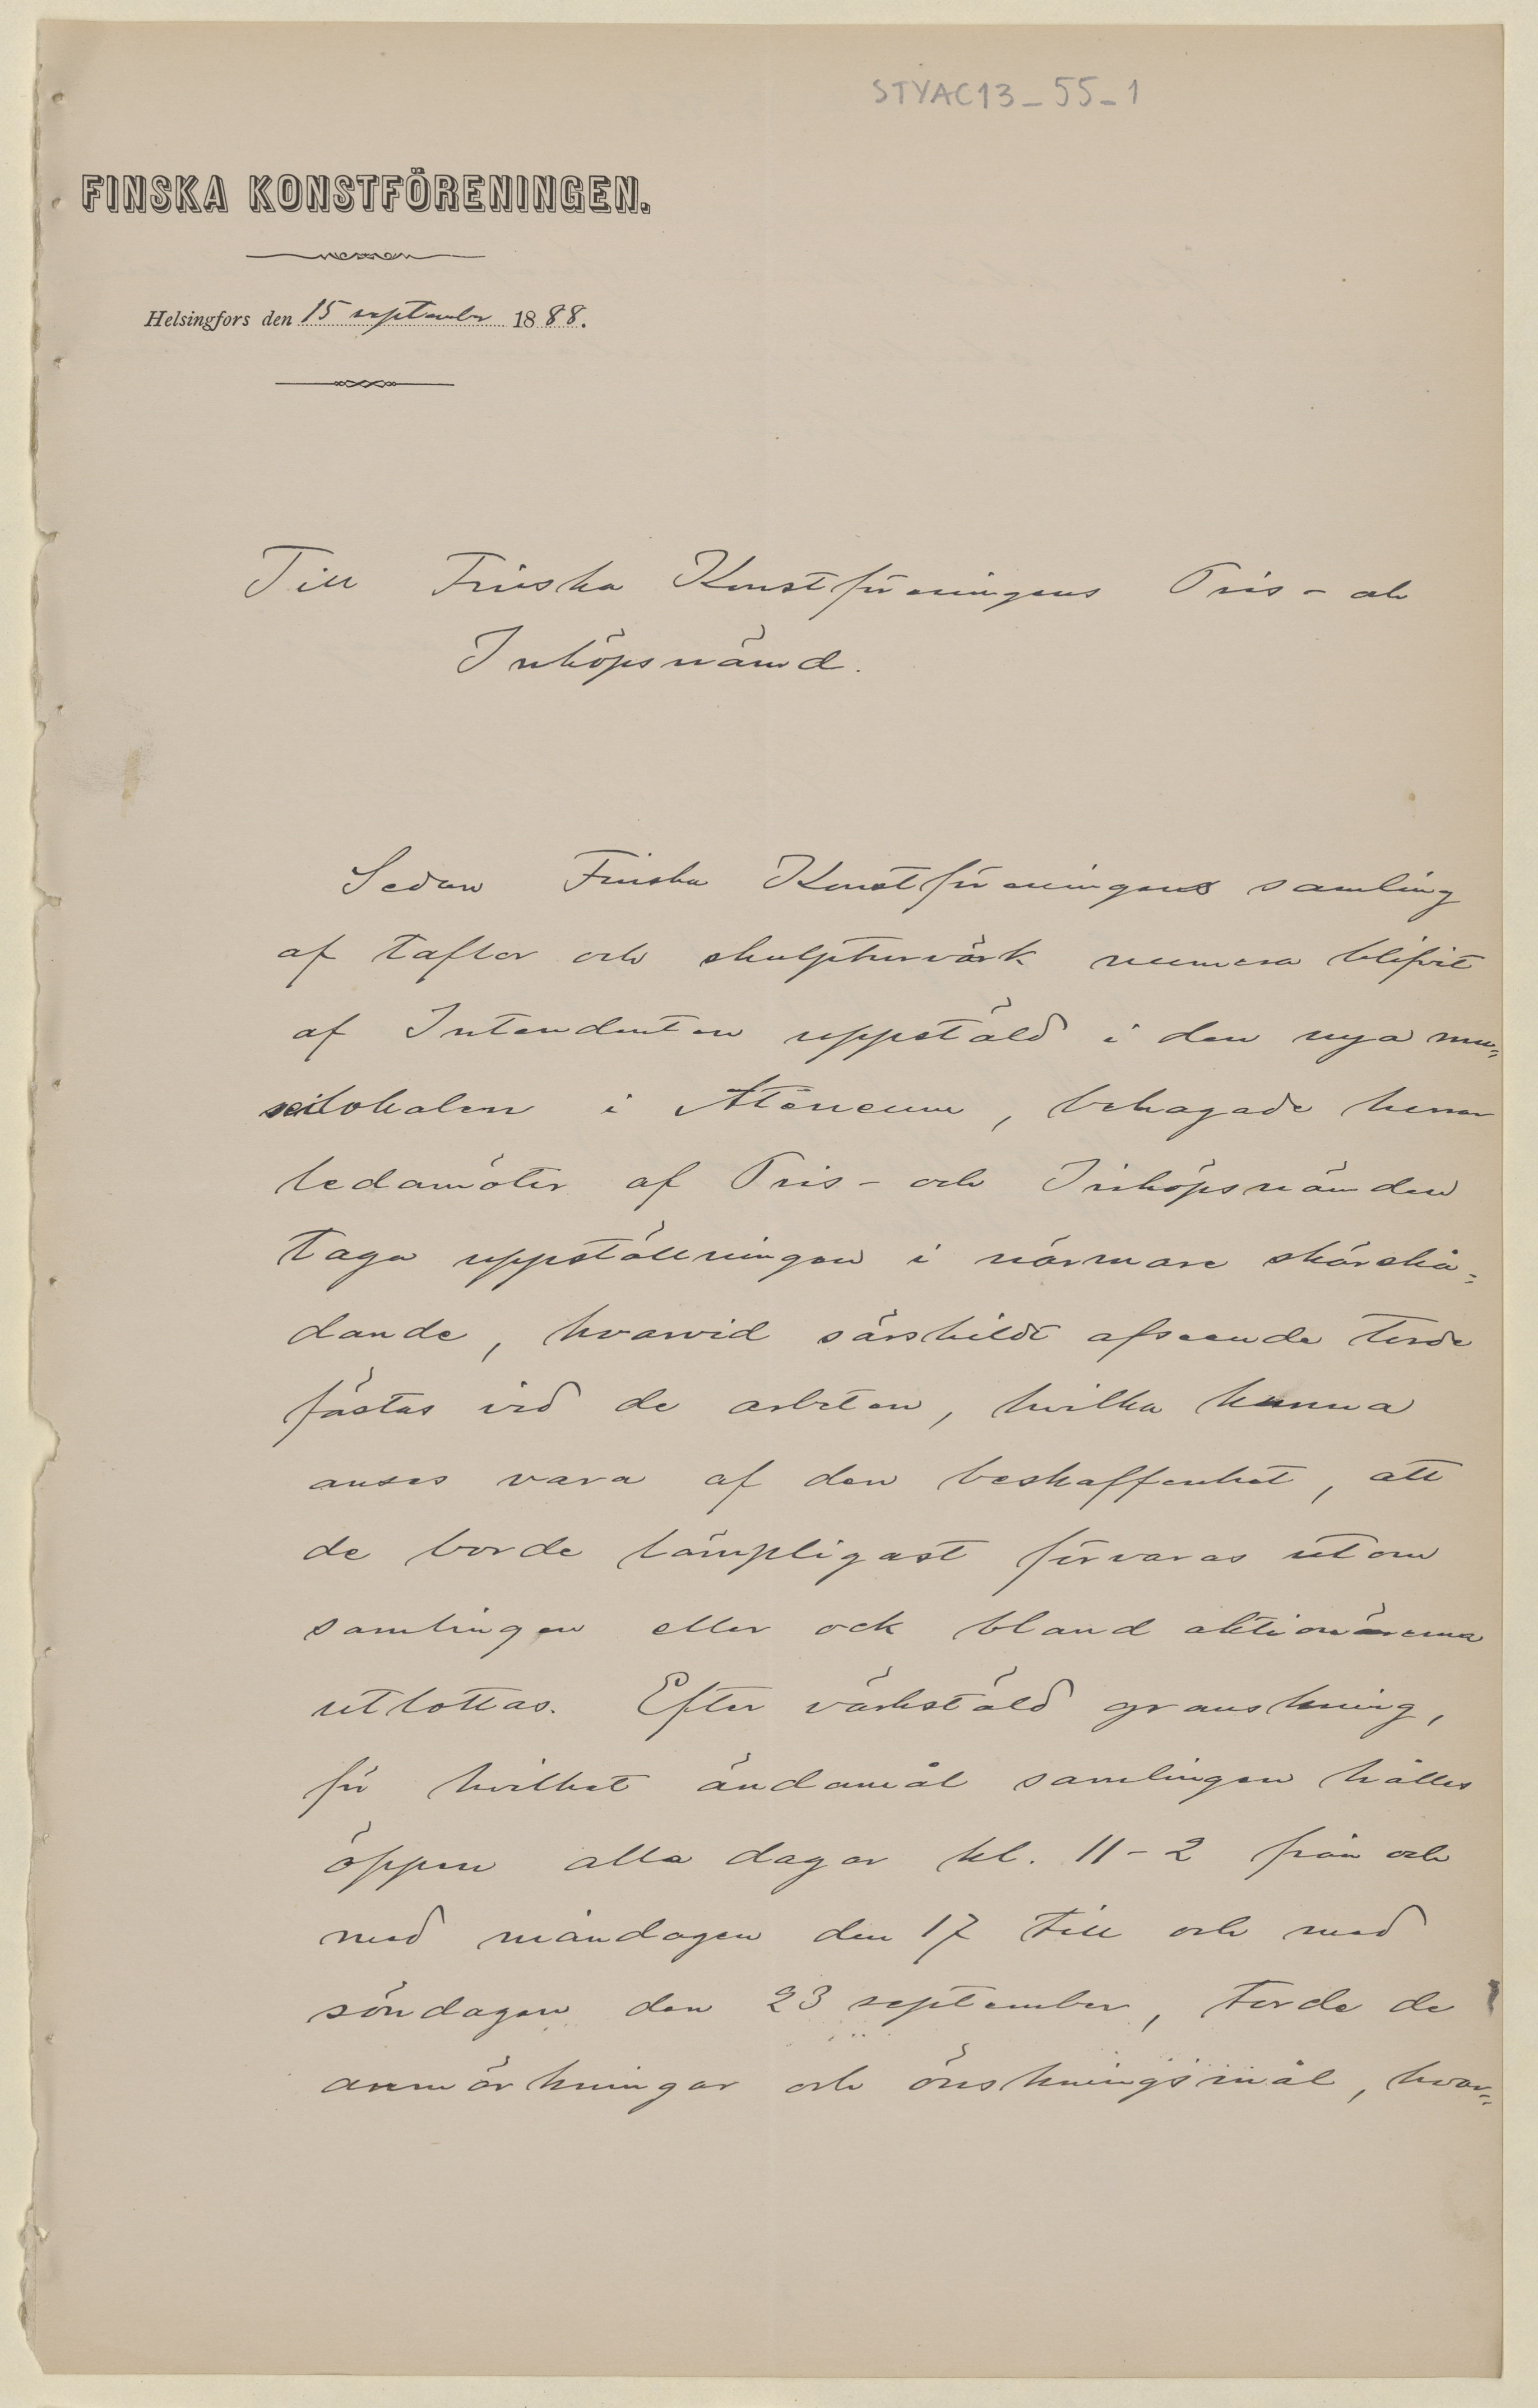 STYAC13_55_1
FINSKA KONSTFÖRENINGEN.
Helsingfors den 15 september 1888.
Till Finska Konstföreningens Pris- och
Inköpsnämd.
Sedan Finska Konstföreningens samling
af taflor och skulpturvärk numera blifvit
af Intendenten uppstäld i den nya mu=
seilokalen i Ateneum, behagade herrar
ledamöter af Pris- och Inköpsnämden
taga uppställningen i närmare skärskå=
dande, hvarvid särskildt afseende torde
fästas vid de arbeten, hvilka kunna
anses vara af den beskaffenhet, att
de borde lämpligast förvaras utom
samlingen eller ock bland aktionärerna
utlottas. Efter värkstäld granskning,
för hvilket ändamål samlingen hålles
öppen alla dagar kl. 11-2 från och
med måndagen den 17 till och med
söndagen den 23 september, torde de
anmärkningar och önskningsmål, hvar=